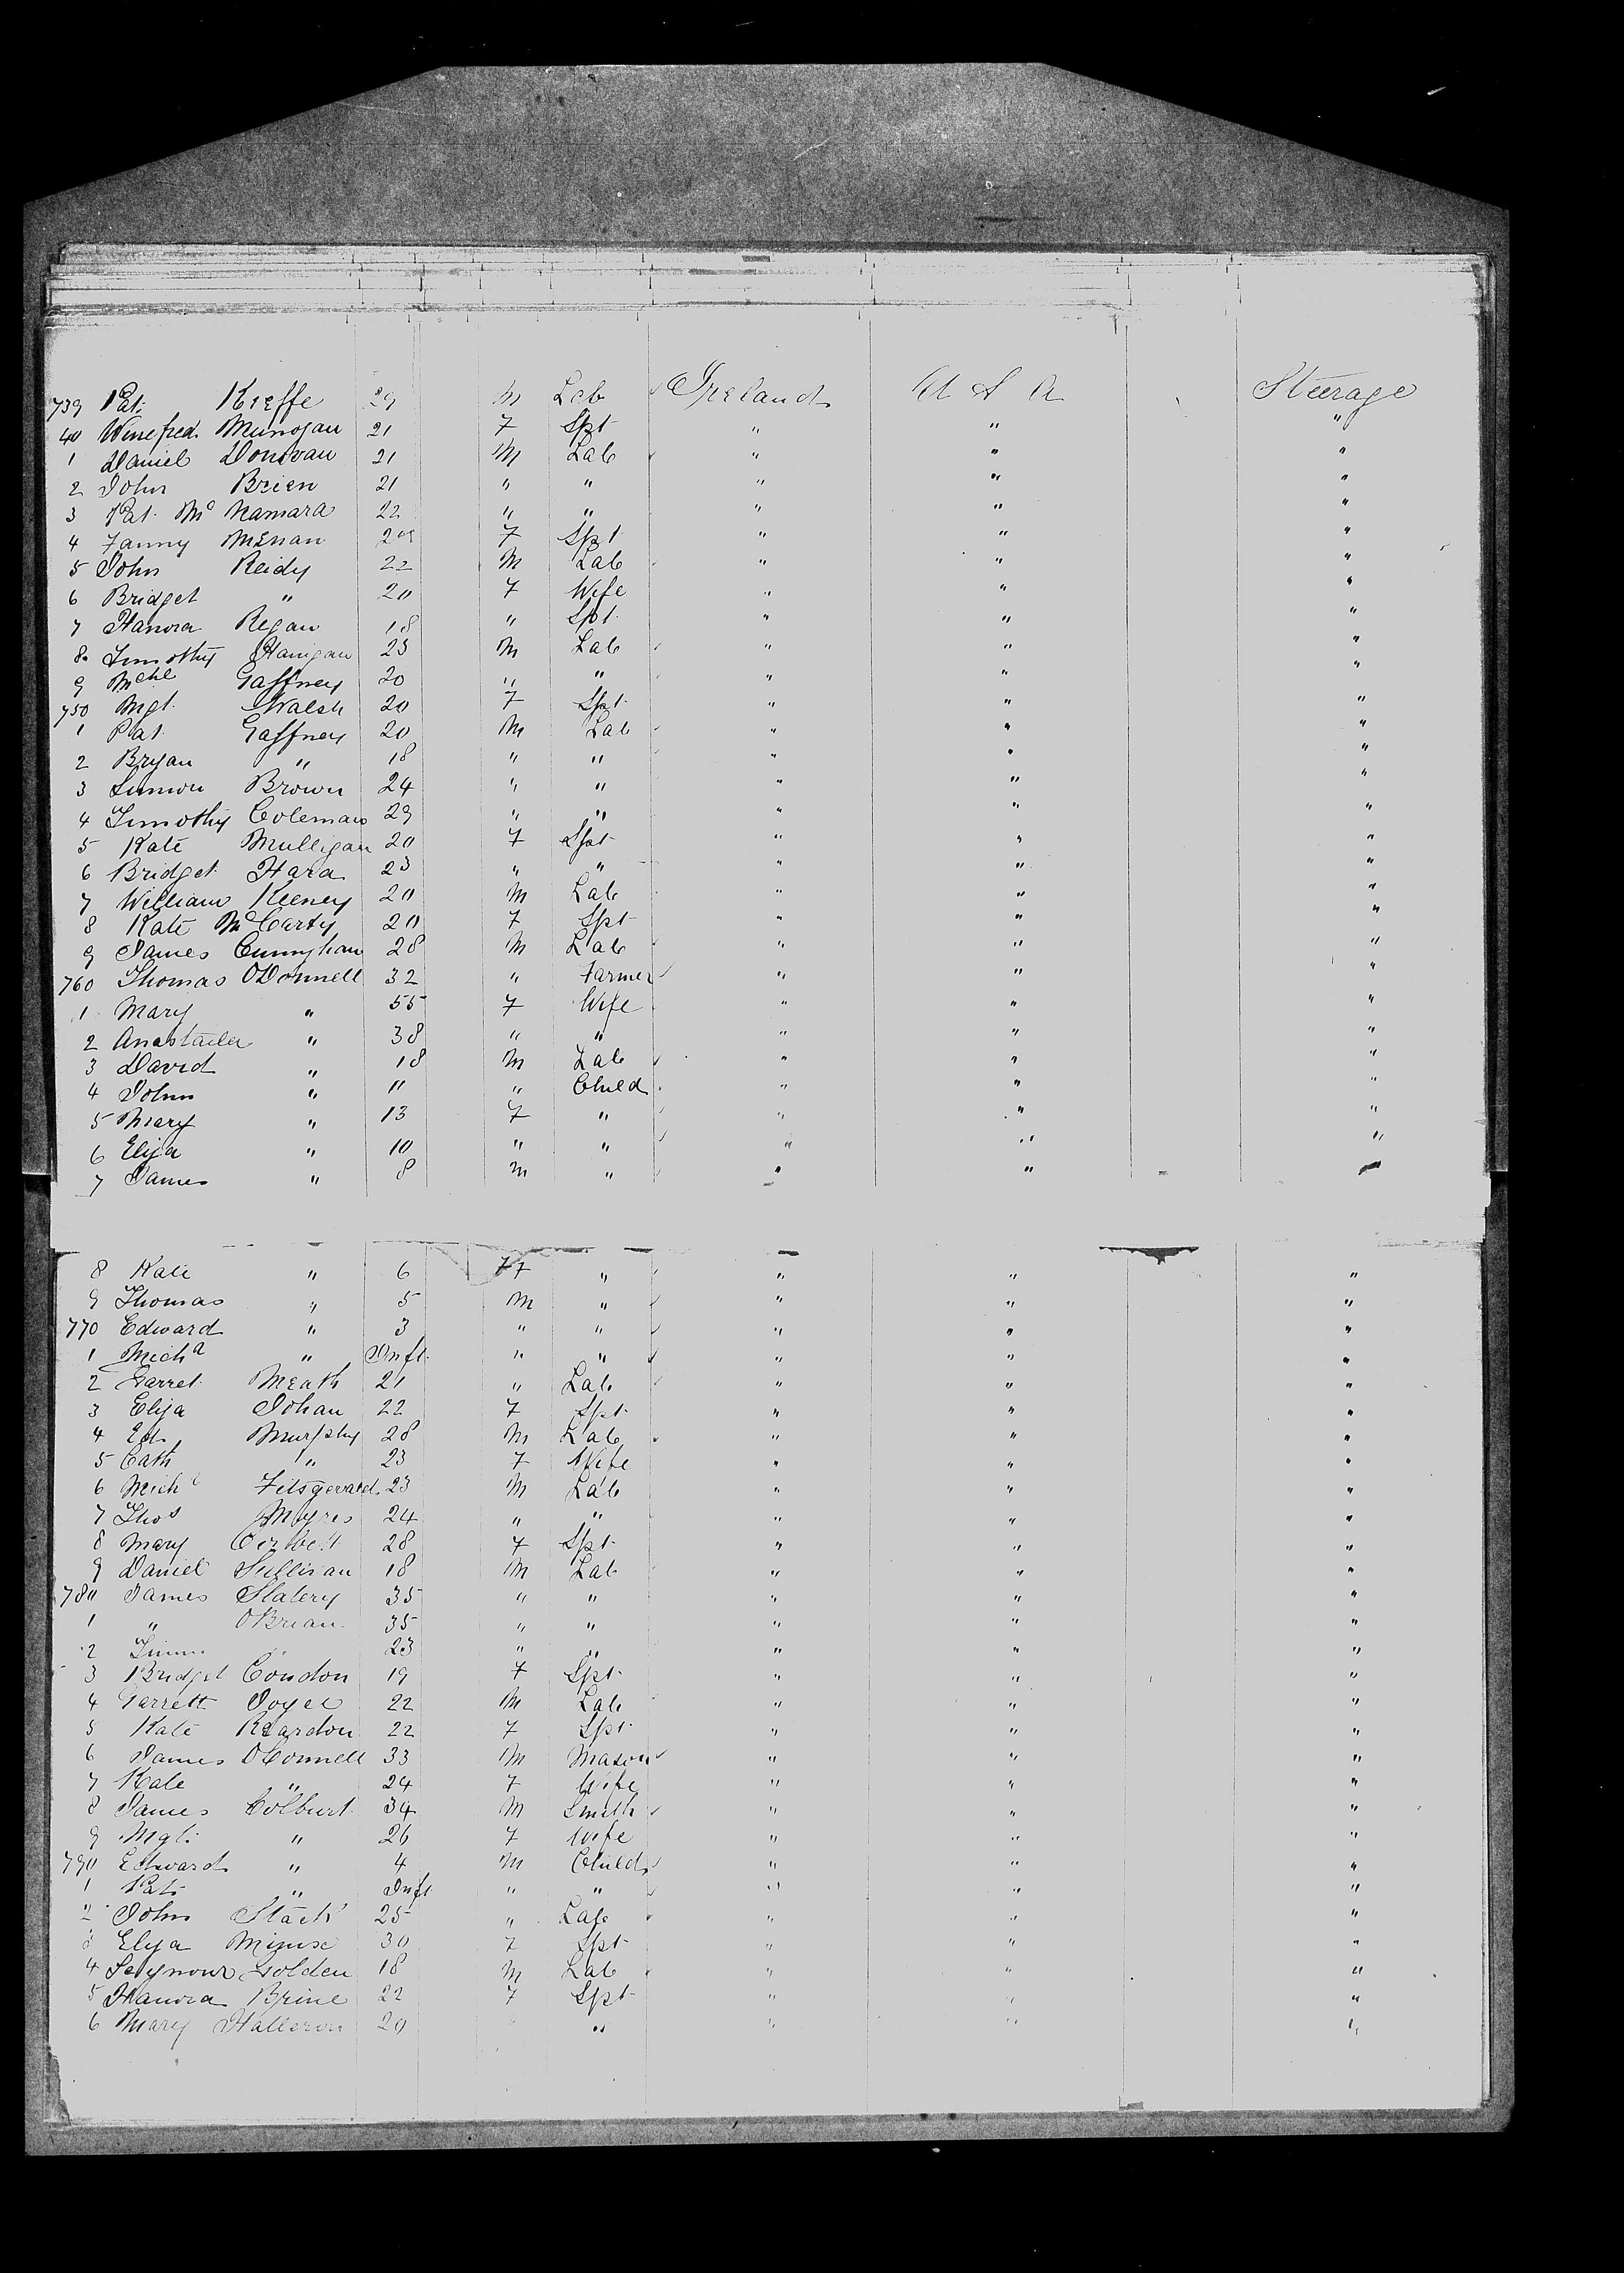 739 Pat: Kieffe 29 M Lab Ireland U S A Steerage
40 Winefred Munogan 21 F Spt " " "
1 Daniel Donovan 21 M Lab " " "
2 John Brien 21 " " " " "
3 Pat Mc Namara 22 " " " " "
4 Fanny 20 F Spt " " "
5 John Reidy 22 M Lab " " "
6 Bridget " 20 F Wife " " "
7 Hanora Regan 18 " Spt " " "
8 Timothy Hanigan 23 M Lab " " "
9 Mchl Gaffney 20 " " " " "
750 Mgt Walsh 20 F Spt " " "
1 Pat Gaffney 20 M Lab " " "
2 Bryan " 18 " " " " "
3 Simon Brown 24 " " " " "
4 Timothy Coleman 29 " " " " "
5 Kate Mulligan 20 F Spt " " "
6 Bridget Hara 23 " " " " "
7 William Keeney 20 M Lab " " "
8 Kate McCarty 20 F Spt " " "
9 James Cunnyham 28 M Lab " " "
760 Thomas ODonnell 32 " Farmer " " "
1 Mary " 55 F Wife " " "
2 " 38 " " " " "
3 David " 18 M Lab " " "
4 John " 11 " Child " " "
5 Mary " 13 F " " " "
6 Eliza " 10 " " " " "
7 James " 8 M " " " "
8 Kate " 6 F " " " "
9 Thomas " 5 M " " " "
770 Edward " 3 " " " " "
1 Michl " Inft. " " " " "
2 Garret Meath 21 " Lab " " "
3 Eliza Johan 22 F Spt " " "
4 Ed. Murphy 28 M Lab " " "
5 Cath " 23 F Wife " " "
6 Michl Fitsgerald 23 M Lab " " "
7 Thos Myres 24 " " " " "
8 Mary Corbett 28 F Spt " " "
9 Daniel Sullivan 18 M Lab " " "
780 James Slatery 35 " " " " "
1 " OBrian 35 " " " " "
2 " 23 " " " " "
3 Bridget Condon 19 F Spt " " "
4 Garrett Joyce 22 M Lab " " "
5 Kate Reardon 22 F Spt " " "
6 James OConnell 33 M Mason " " "
7 Kate " 24 F Wife " " "
8 James Colburt 34 M Smith " " "
9 Mgt: " 26 F Wife " " "
790 Edward " 4 M Child " " "
1 Pat: " Inft " " " " "
2 John Stack 25 " Lab " " "
3 Eliza 30 F Spt " " "
4 Seymour Golden 18 M Lab " " "
5 Hanora Brine 22 F Spt " " "
6 Mary Halleron 20 " " " "